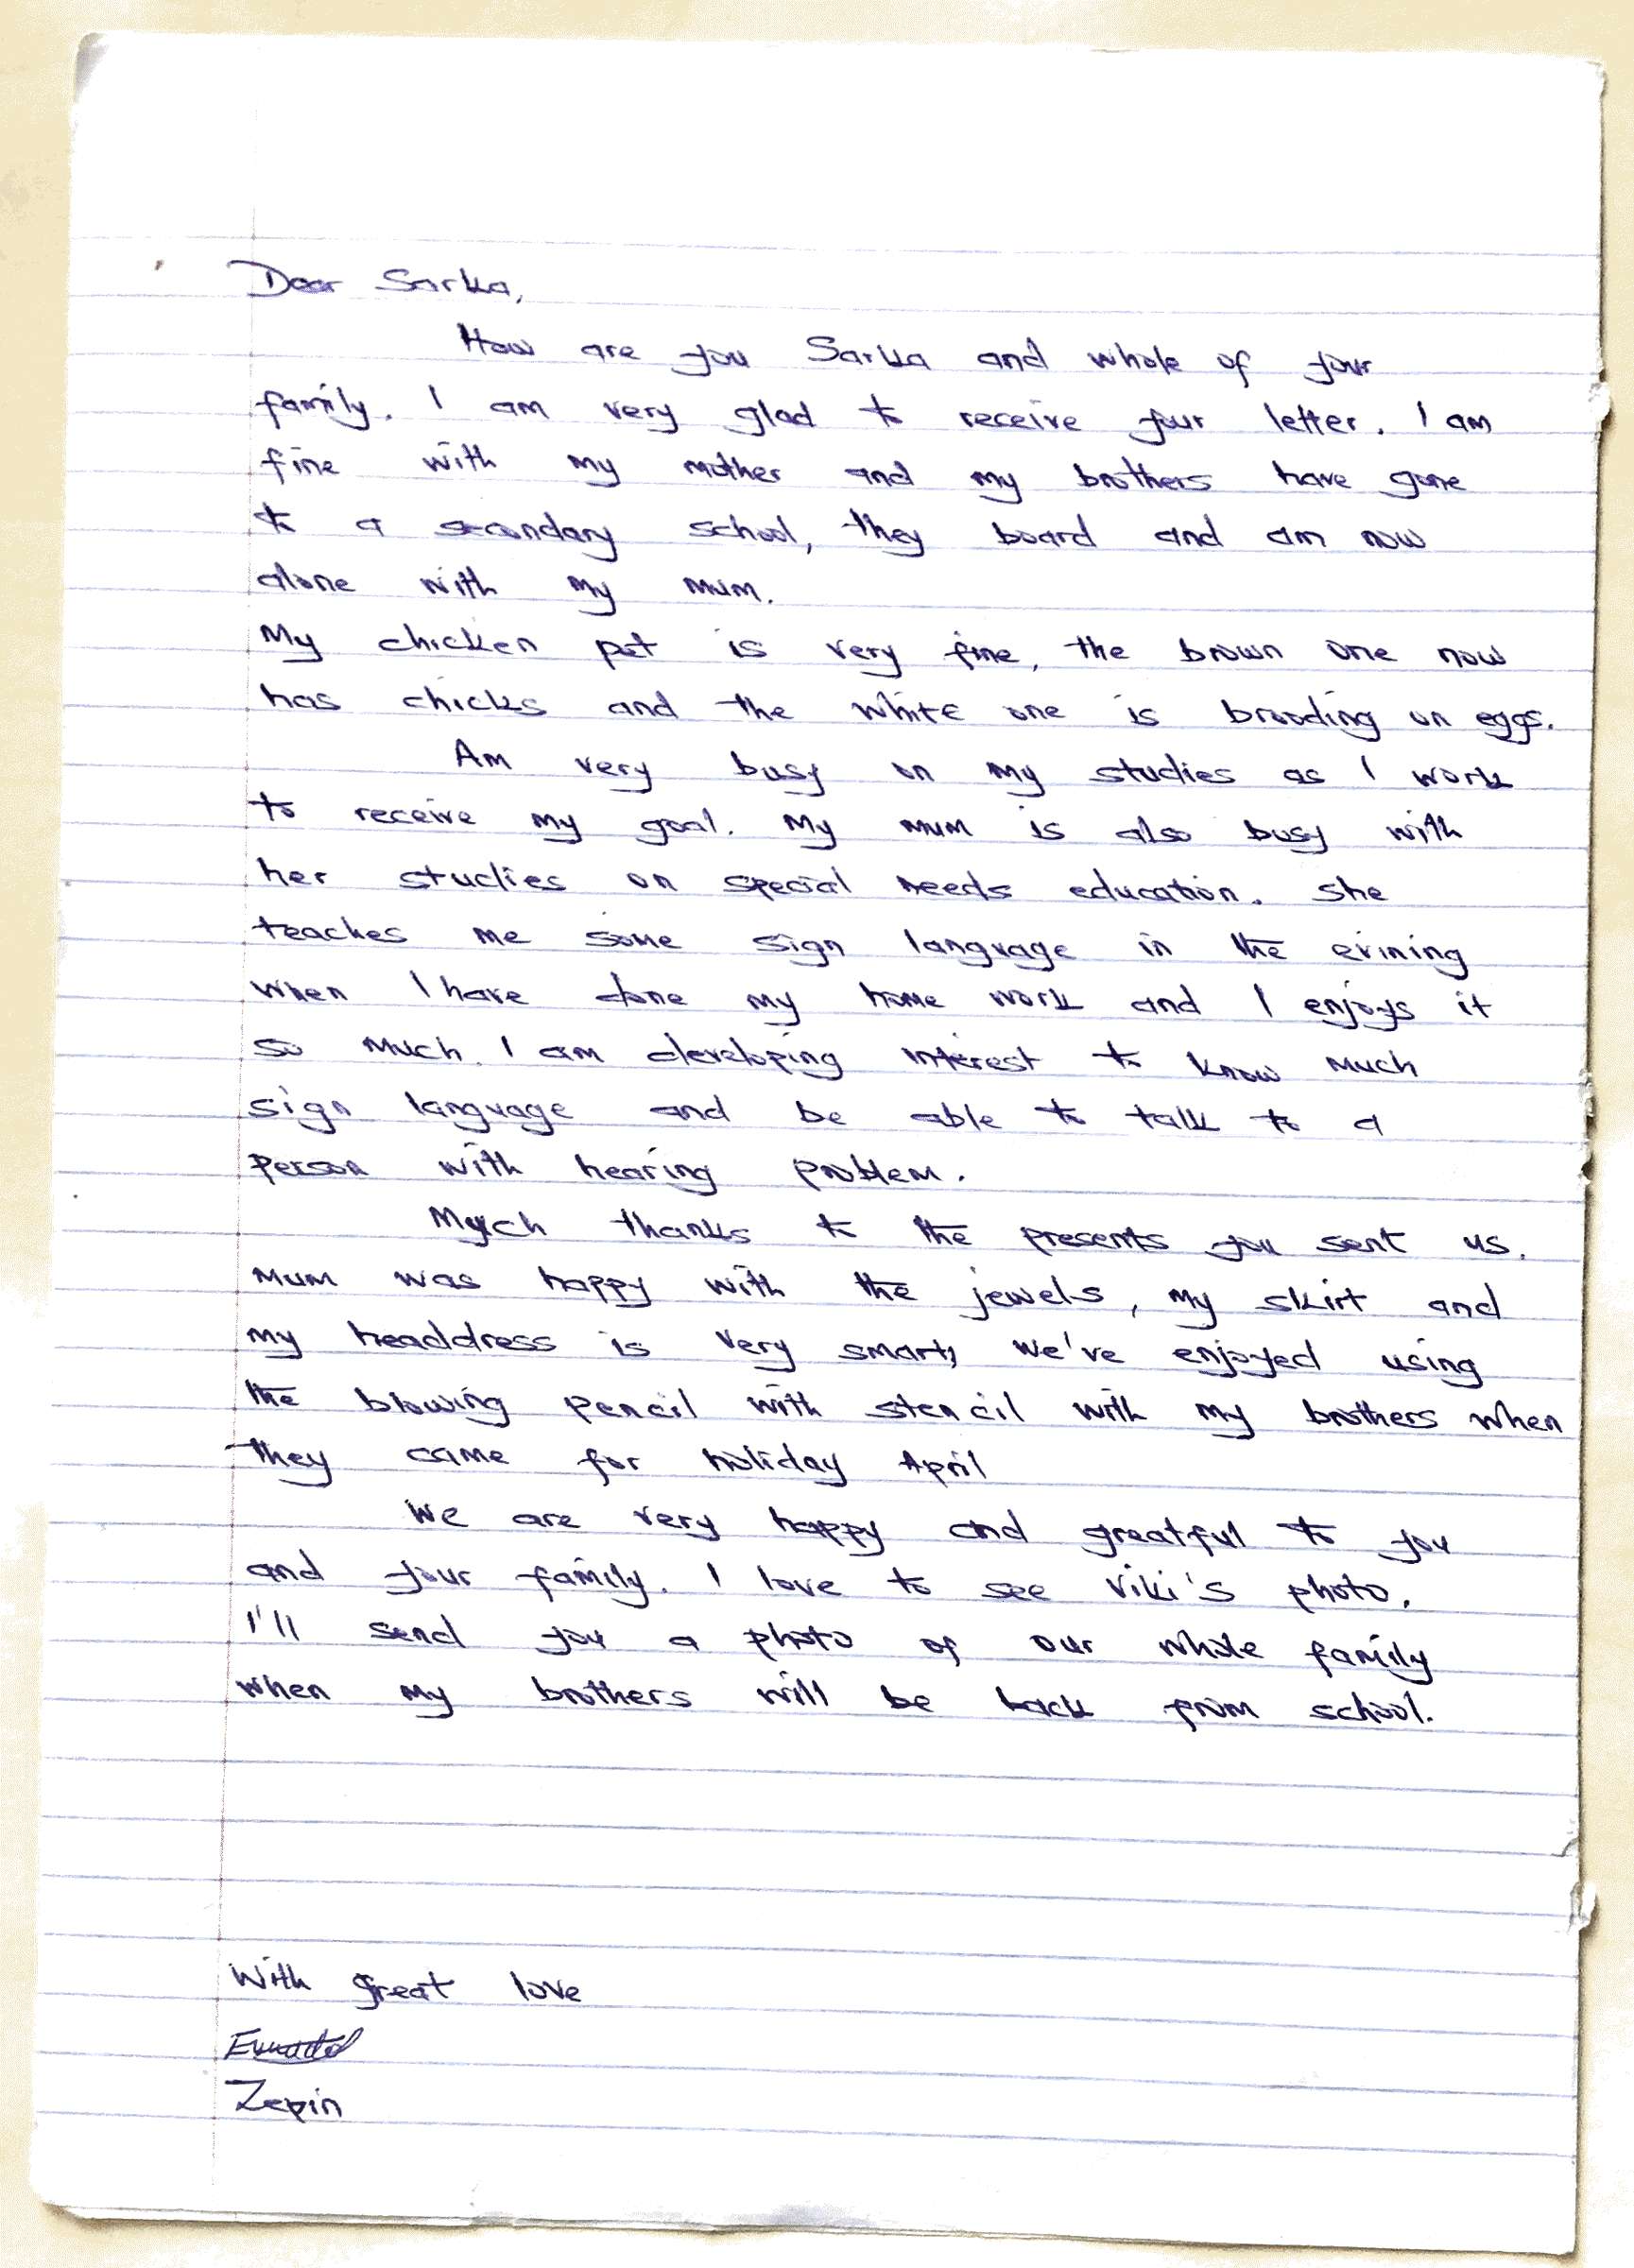 Dear Sarka,
How are you Sarka and whole of your
family. I am very glad to receive your letter. I am
fine with my mother and my brothers have gone
to a secondary school, they board and am now
alone with my mum.
My chicken pet is very fine, the brown one now
has chicks and the white one is brooding on eggs.
Am very busy on my studies as I work
to receive my goal. My mum is also busy with
her studies on special needs education. she
teaches me some sign language in the evining
when I have done my home work and I enjoys it
so much. I am developing interest to know much
sign language and be able to talk to a
person with hearing problem.
Much thanks to the presents you sent us.
Mum was happy with the jewels, my skirt and
my headdress is very smart, we've enjoyed using
the blowing pencil with stencil with my brothers when
they came for holiday April
We are very happy and greatful to you
and your family. I love to see Viki's photo.
I'll send you a photo of our whole family
when my brothers will be back from school.
With great love
Zepin